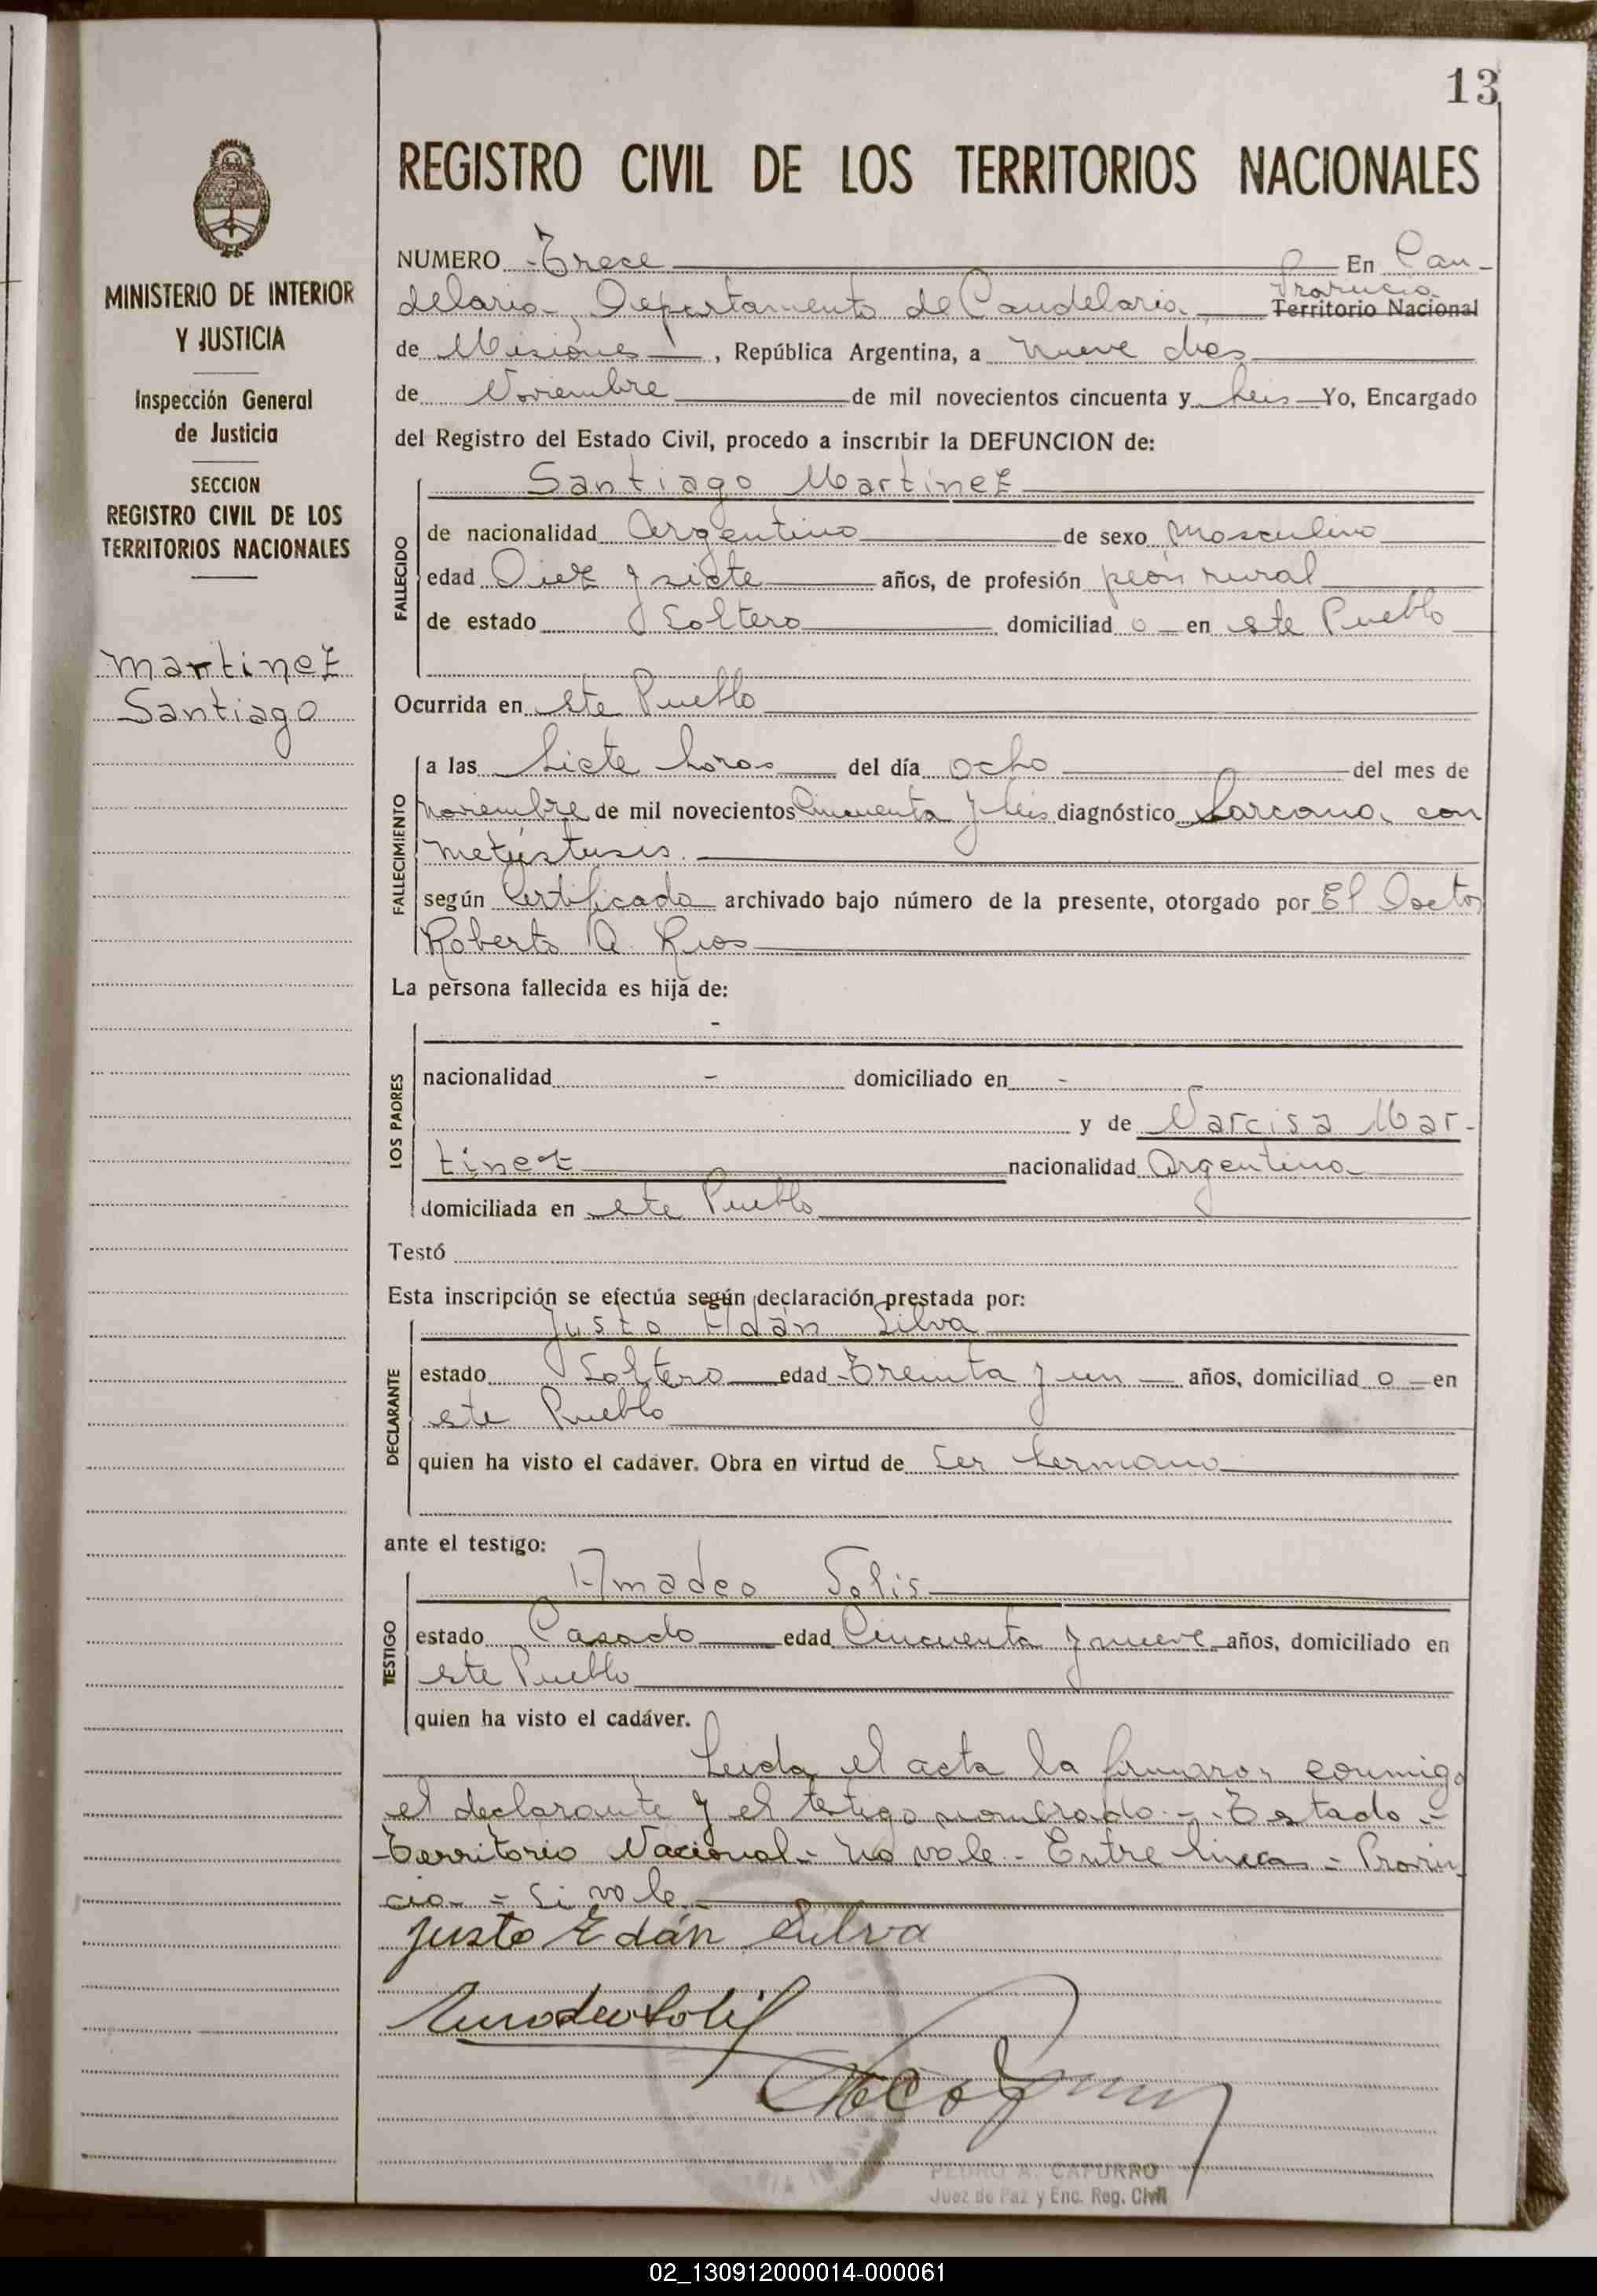 13
REGISTRO CIVIL DE LOS TERRITORIOS NACIONALES
MINISTERIO DE INTERIOR
Y JUSTICIA
Inspección General
de Justicia
SECCION
REGISTRO CIVIL DE LOS
TERRITORIOS NACIONALES
Martinez
Santiago
NUMERO Trece En Can-
delaria, Departamento de Candelaria Provincia Territorio Nacional
de Misiones, República Argentina, a nueve dias
de Noviembre de mil novecientos cincuenta y seis Yo, Encargado
del Registro del Estado Civil, procedo a inscribir la DEFUNCION de:
FALLECIDO
Santiago Martinez
de nacionalidad Argentino de sexo Masculino
edad Diez y siete años, de profesión peón rural
de estado Soltero domiciliad o en este Pueblo
Ocurrida en este Pueblo
FALLECIMIENTO
a las siete horas del día ocho del mes de
noviembre de mil novecientos cincuenta y seis diagnóstico Sarcoma con
metástasis.
según Certificado archivado bajo número de la presente, otorgado por El Doctor
Roberto A. Rios
La persona fallecida es hija de:
LOS PADRES
-
nacionalidad - domiciliado en -
y de Narcisa Mar-
tinez nacionalidad Argentina
domiciliada en este Pueblo
Testó
Esta inscripción se efectúa según declaración prestada por:
DECLARANTE
Justo Edán Silva
estado Soltero edad Treinta y un años, domiciliad o en
este Pueblo
quien ha visto el cadáver. Obra en virtud de ser hermano
ante el testigo:
TESTIGO
Amadeo Solis
estado Casado edad Cincuenta y nueve años, domiciliado en
este Pueblo
quien ha visto el cadáver.
Leida el acta la firmaron conmigo
el declarante y el testigo nombrado.- Testado -
Territorio Nacional - no vale - Entre lineas - Provin
cia - = Si vale
Justo Edán Silva
Amadeo Solis
PEDRO A. CAPURRO
Juez de Paz y Enc. Reg. Civil
02_130912000014-000061